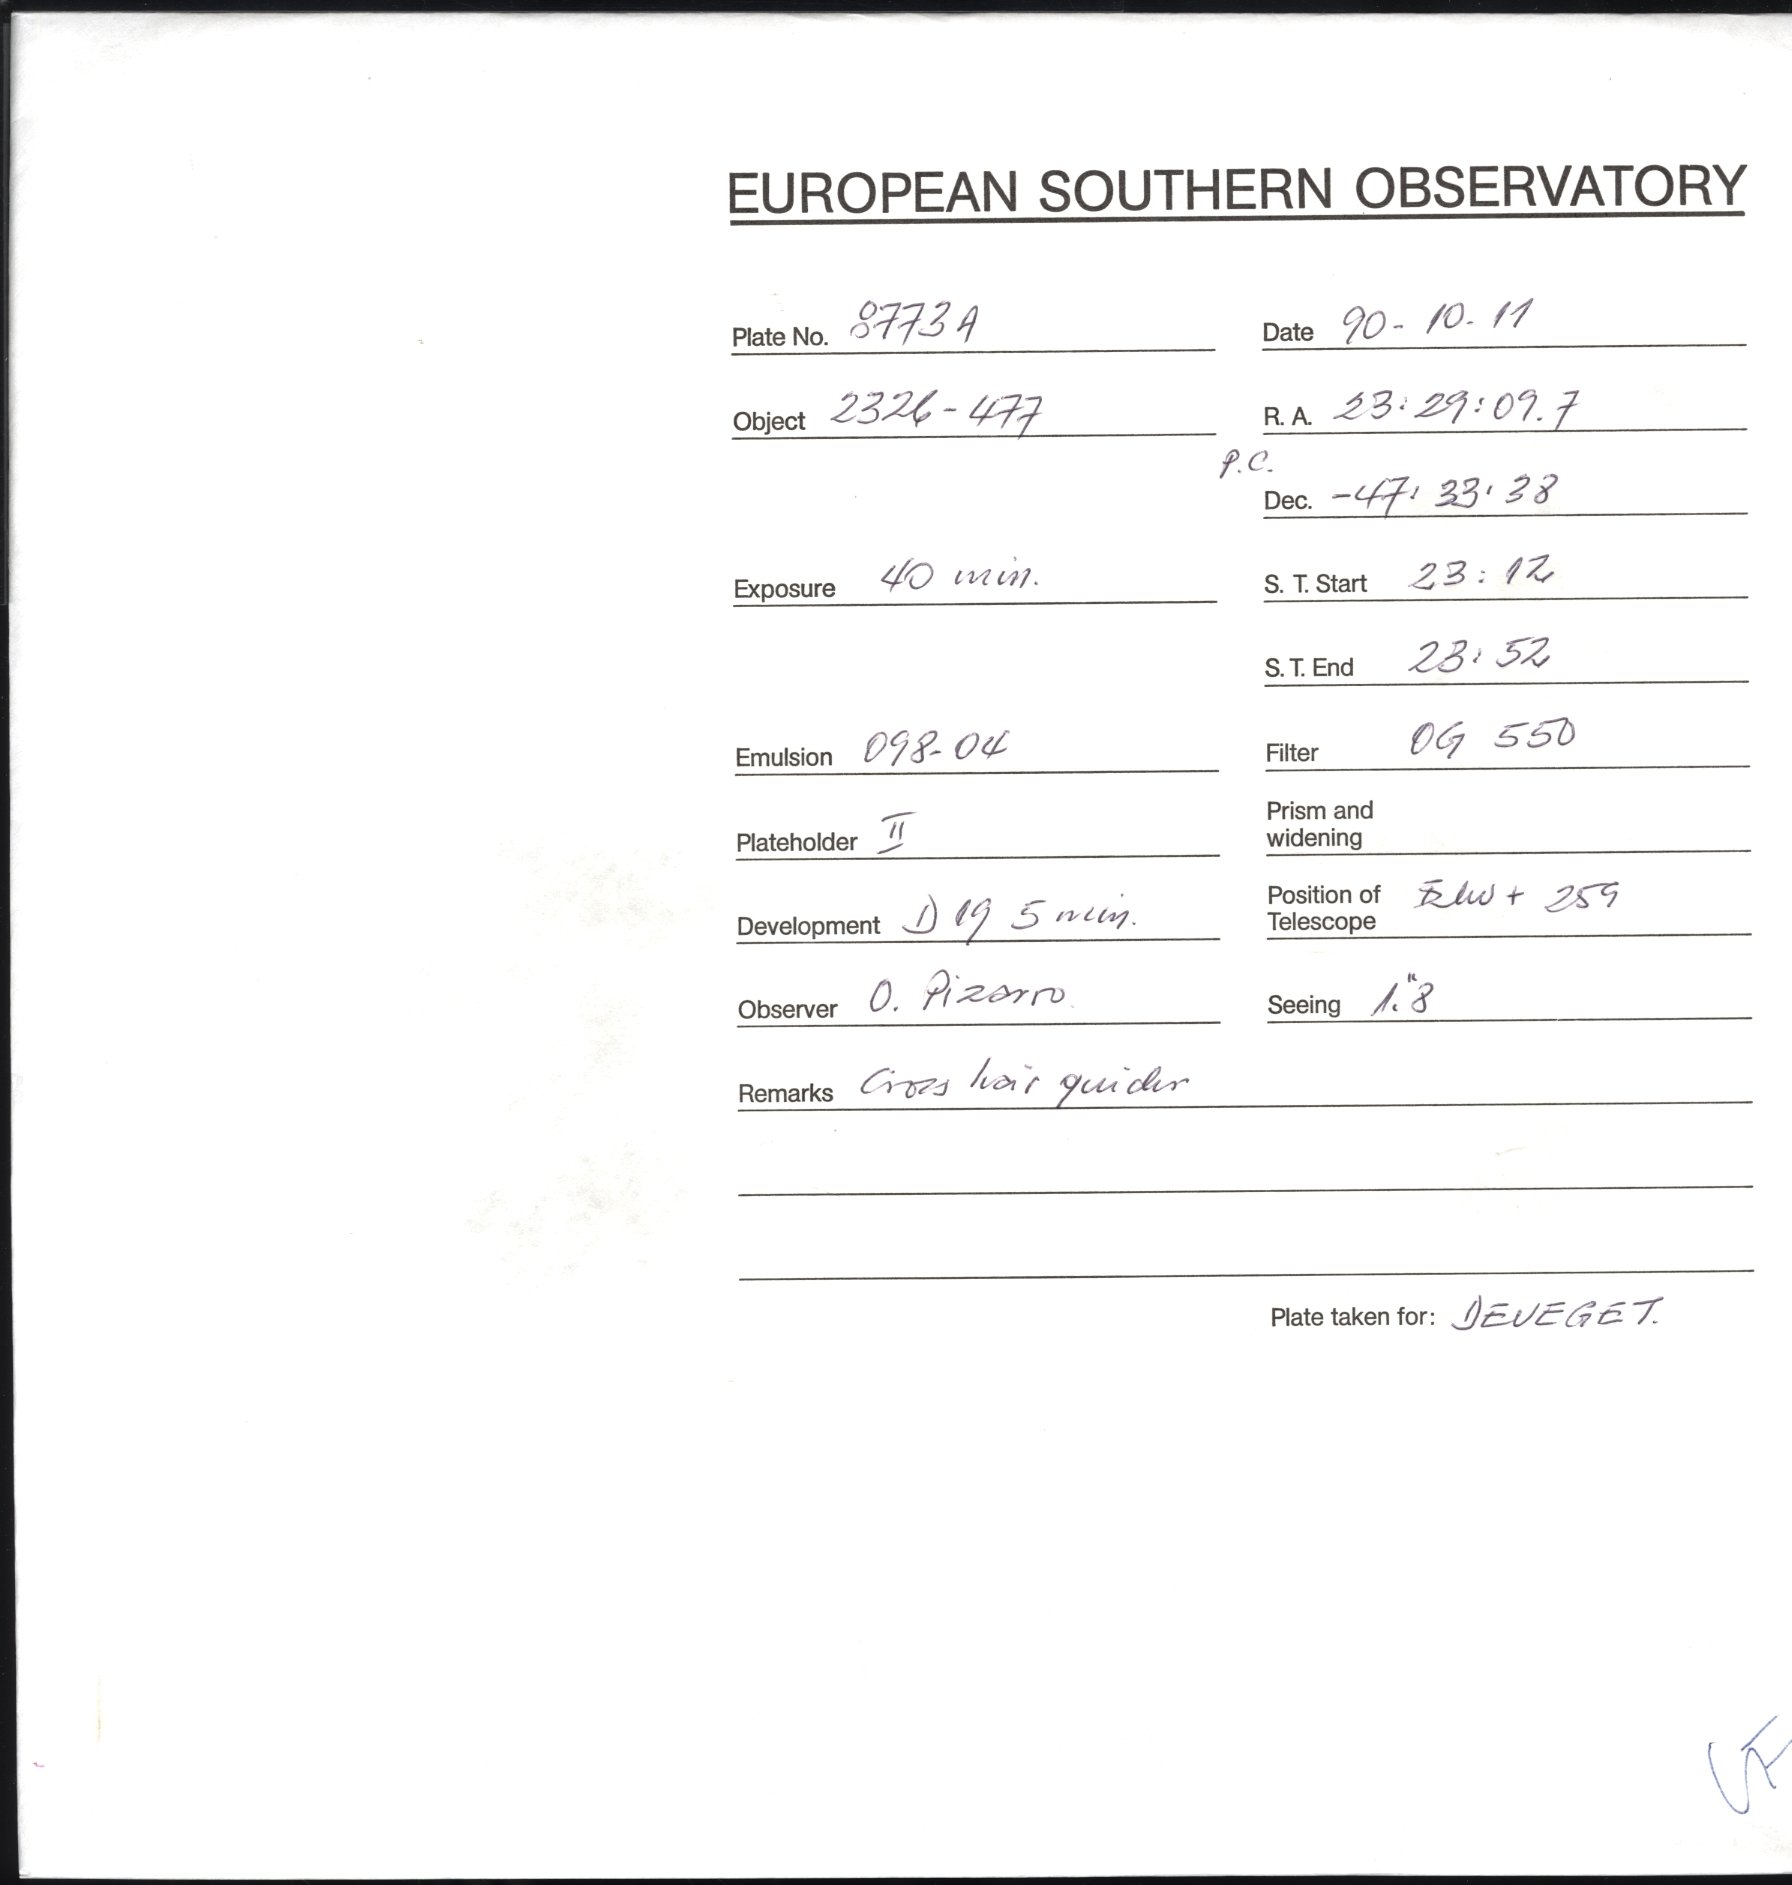 EUROPEAN SOUTHERN OBSERVATORY
Plate No. 8773A Date 90-10-11
Object 2326-477 R. A. 23:29:09.7
P.C.
Dec. -47:33:38
Exposure 40 min. S. T. Start 23:12
S. T. End 23:52
Emulsion 098-04 Filter OG 550
Plateholder II Prism and
widening
Development D 19 5 min. Position of
Telescope + 259
Observer O. Pizarro Seeing 1."8
Remarks Cross hair guider
Plate taken for: DEVEGET.